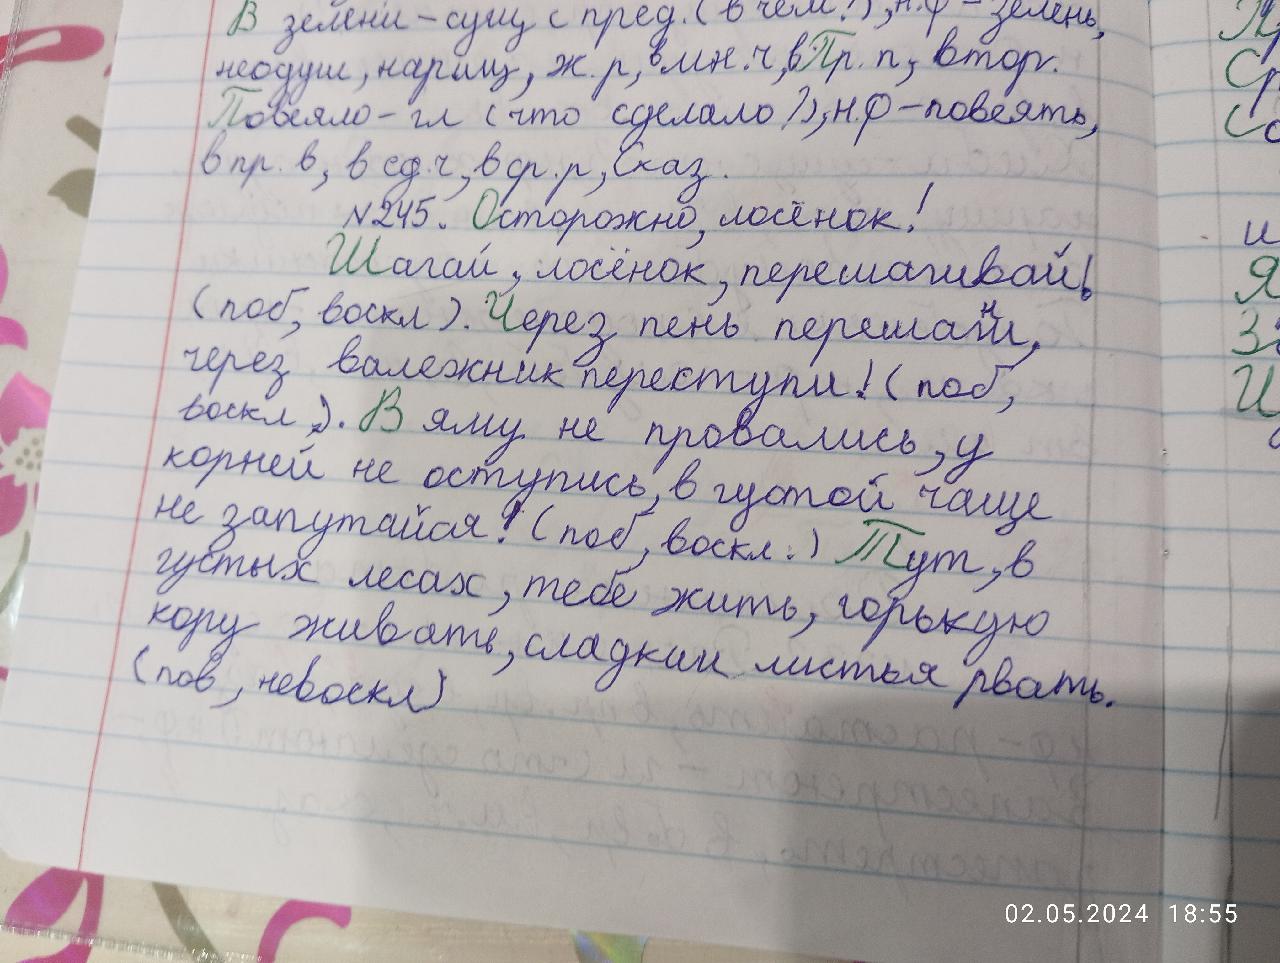 В зелени - сущ с пред. (в чём?), н.ф - зелень,
неодуш, нариц, ж.р, в мн.ч, в Пр.п, втор.
Повеяло - гл (что сделало?), н.ф - повеять,
в пр.в, в ед.ч, в ср.р, Сказ.
№245. Осторожно, лосёнок!
Шагай, лосёнок, перешагивай!
(поб, воскл). Через пень перешагни,
через валежник переступи! (поб,
воскл.). В яму не провались, у
корней не оступись, в густой чаще
не запутайся! (поб, воскл.) Тут, в
густых лесах, тебе жить, горькую
кору живать, сладкии листья рвать.
(пов, невоскл)
02.05.2024 18:55